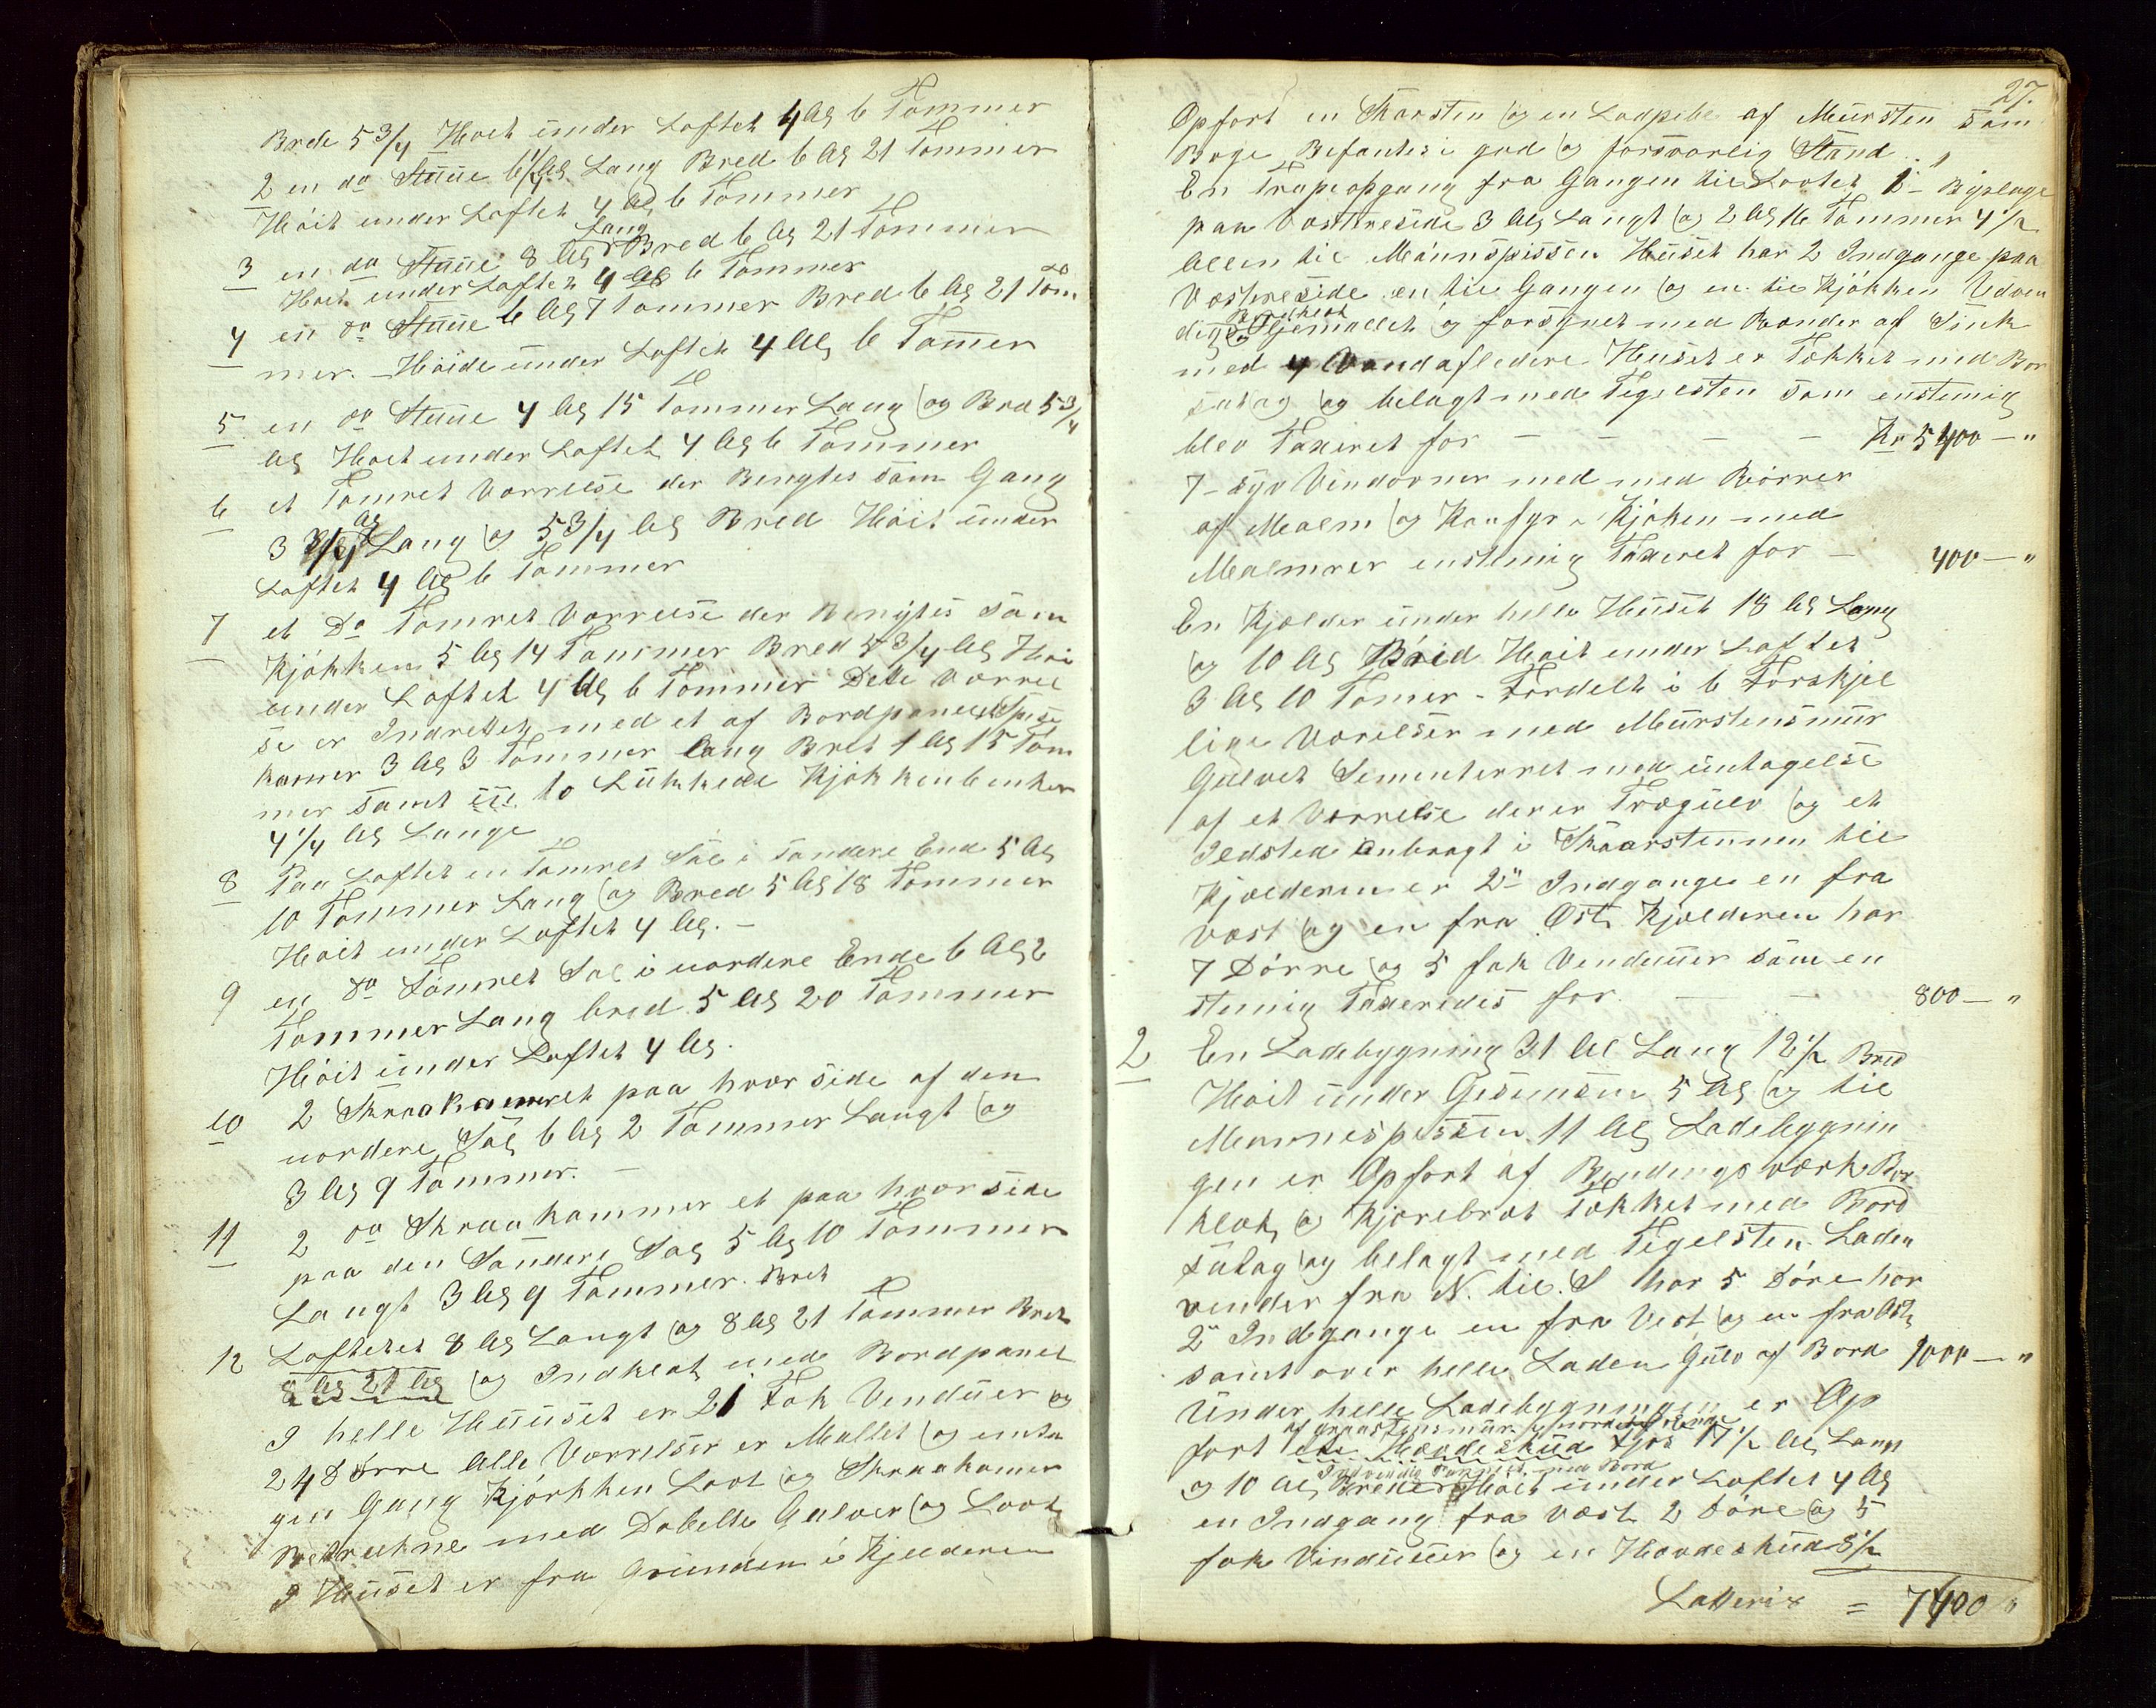 Brede 5 3/4 Hoit under Loftet 4 Al 6 Tommer
2 en do Stuue 6 1/4 Al Lang Bred 6 Al 21 Tommer
Höit under Loftet 4 Al 6 Tommer
3 en do Stuue 8 Al Lang Bred 6 Al 21 Tommer
Hoit under Loftet 4 Al 6 Tommer
4 en do Stuue 6 Al 7 Tommer Bred 6 Al 21 Tom
mer. Höide under Loftet 4 Al 6 Tommer
5 en do Stuue 4 Al 15 Tommer Lang og Bred 5 3/4
Al Hoit under Loftet 4 Al 6 Tommer
6 et Tomret Vorrelse der Bengtes som Gang
3 3/4 Al Lang og 5 3/4 Al Bred Höit under
Loftet 4 Al 6 Tommer
7 et Do Tomret Vorrelse der Bengtes som
Kjökken 5 Al 14 Tommer Bred 5 3/4 Al Hoi
under Loftet 4 Al 6 Tommer Dette Vorrel
se er Indrettet med et af Bordpanel Spise
kamer 3 Al 3 Tommer lang Bret 1 Al 15 Tom
mer samt to Lukkede Kjökkenbenker
4 1/4 Al Lange
8 Paa Loftet en Tomret Sal i söndere End 5 Al
10 Tommer Lang og Bred 5 Al 18 Tommer
Hoit under Loftet 4 Al. —
9 en do Tomret Sal i nordere Ende 6 Al 2
Tommer Lang bred 5 Al 20 Tommer
Höit under Loftet 4 Al.
10 2 Skraakamret paa hvor side af den
nordere Sal 6 Al 2 Tommer Langt og
3 Al 9 Tommer. —
11 2 do Skraakammer et paa hvor side
paa den Sondere Sal 5 Al 10 Tommer
Langt 3 Al 9 Tommer. Bret
12 Loftetet 8 Al Langt og 8 Al 21 Tommer Bret
8 Al 21 Al og Indklat med Bordpanel
I helle Huuset er 21 Fak Venduer og
24 Dörre Alle Vorrelser er Mallet og unta
gen Gang Kjörkken Loot og Skraakamer
Betrukne med Dobelte Gulver og Loot
I Huset er fra Grunden i Kjelderen
27.
Opfort en Skorsten og en Ladpibe af Mursten som
Boge Befantes i god og forsvorlig Stand
En Trapeopgang fra Gangen til Lovtet 1 Byslage
paa Vostreside 3 Al Langt og 2 Al 16 Tommer 4 1/2
Allen til Mönnspissen Huset har 2 Indgange paa
Vostreside en til Gangen og en til Kjökken Udven
dig Bordklat Oljemallet og forsynet med Bonder af Sink
med 4 Vandafledere Huset er Tökket med Bor
sutag og belagt med Tegelsten som enstemig
blev Taxeret for — — — — Kr 5400 — "
7 – syv Vindovner med med Rörrer
af Malm og Komfyr i Kjöken med
Malmrer enstemig Taxeret for — 400 — "
En Kjælder under helle Huuset 18 Al Lang
og 10 Al Bred Hoit under Loftet
3 Al 10 Tomer – Fordelt i 6 Forskjel
lige Vorelser med Murstensmur
Gulvet Sementerret med untagelse
af et Vorrelse der er Trægulv og et
Ildsted anbragt i Skaarstennen til
Kjælderen er 2" Indgange en fra
Vest og en fra Öst Kjælderen har
7 Dörre og 5 fak Venduuer som en
stemig Taxeredes for. — — 800 — "
2 En Ladebygning 31 Al Lang 12 1/2 Bred
Hoit under Gesimsen 5 Al og til
Mønnespissen 11 Al Ladebygnin
gen er Opfort af Bindingsværk Bor
klat og Kjørebrot Tökket med Bord
sutag og belagt med Tegelsten Laden
vender fra N. til S har 5 Döre hor
2" Indgange en fra Vest og en fra Öst
samt over helle Laden Gulv af Bord 1000 — "
Under helle Ladebygningen er Op
fort af graastensmur i nordre Ende
en Høvdeskur Fjös 17 1/2 Al Lang
Indvendig Panelet med Bord
og 10 Al Brede Hoit under Loftet 4 Al
en Indgang fra Væst 2 Döre og 5
fak Vinduuer og en Høvdeskur 8 1/2
Latteris = 7400